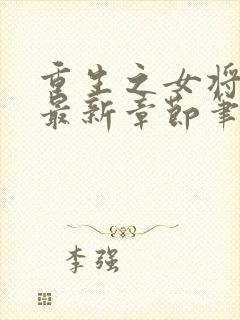 重生之女将
最新章节笔
李强